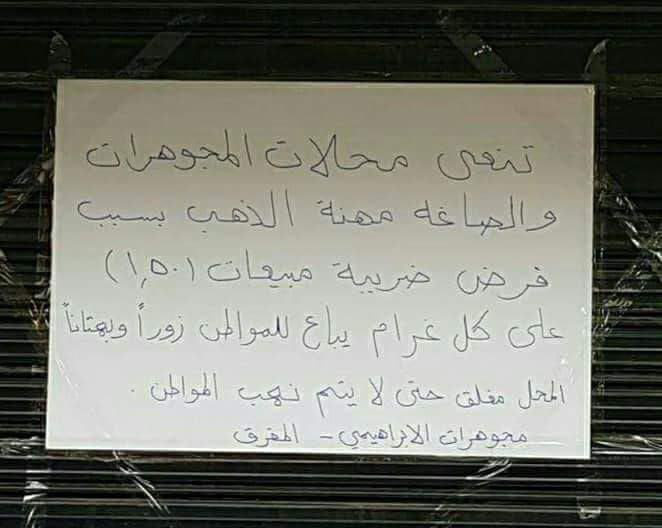 تنعى محلات المجوهرات
والصاغه مهنة الذهب بسبب
فرض ضريبة مبيعات (١,٥٠)
على كل غرام يباع للمواطن زوراً وبهتاناً
المحل مغلق حتى لا يتم نهب المواطن .
مجوهرات الابراهيمي - المفرق